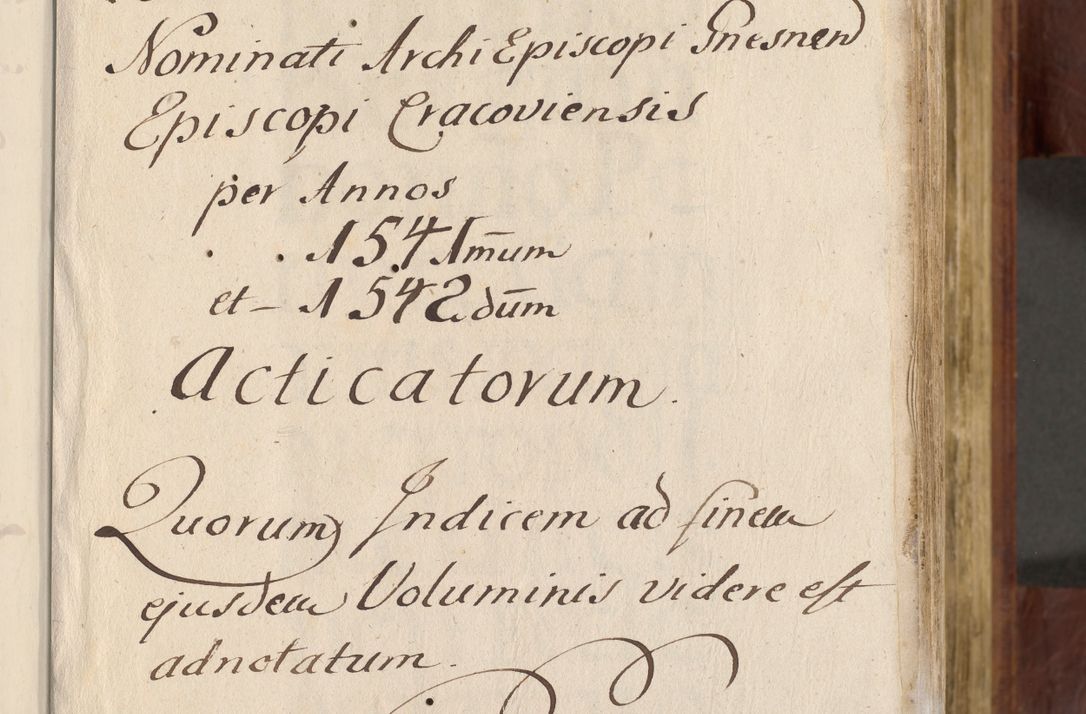 Nominati Archi Episcopi Gnesnen
Episcopi Cracoviensis
per Annos
1541mum
et - 1542dum
Acticatorum.
Quorum Indicem ad finem
ejusdem Voluminis videre est
adnotatum.